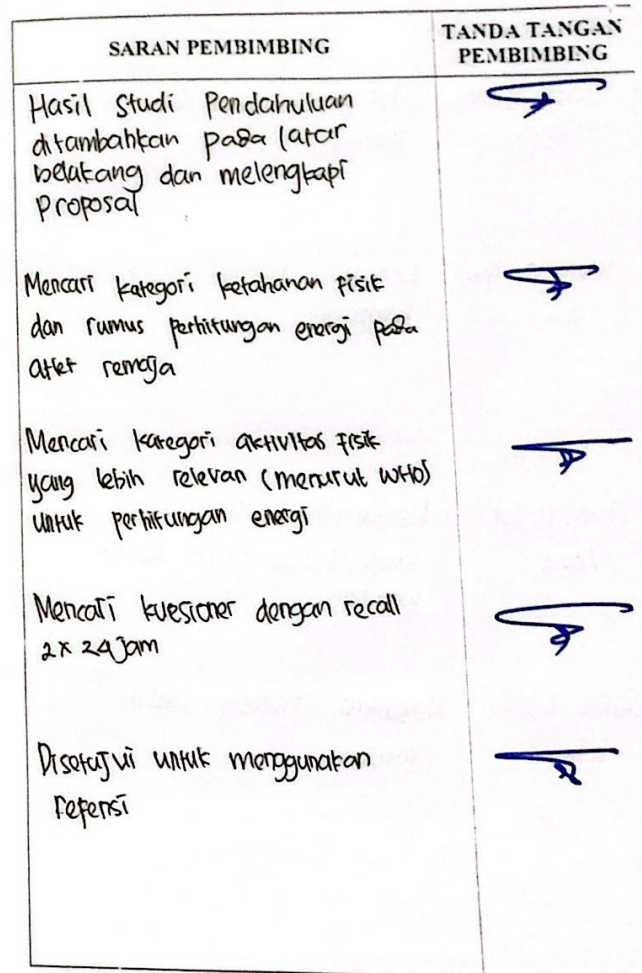 SARAN PEMBIMBING
TANDA TANGAN
PEMBIMBING
Hasil Studi Pendahuluan
ditambahkan pada latar
belakang dan melengkapi
Proposal
Mencari kategori ketahanan fisik
dan rumus perhitungan energi pada
atlet remaja
Mencari kategori aktivitas fisik
yang lebih relevan (menurut WHO)
untuk perhitungan energi
Mencari kuesioner dengan recall
2x24 jam
Disetujui untuk menggunakan
refensi